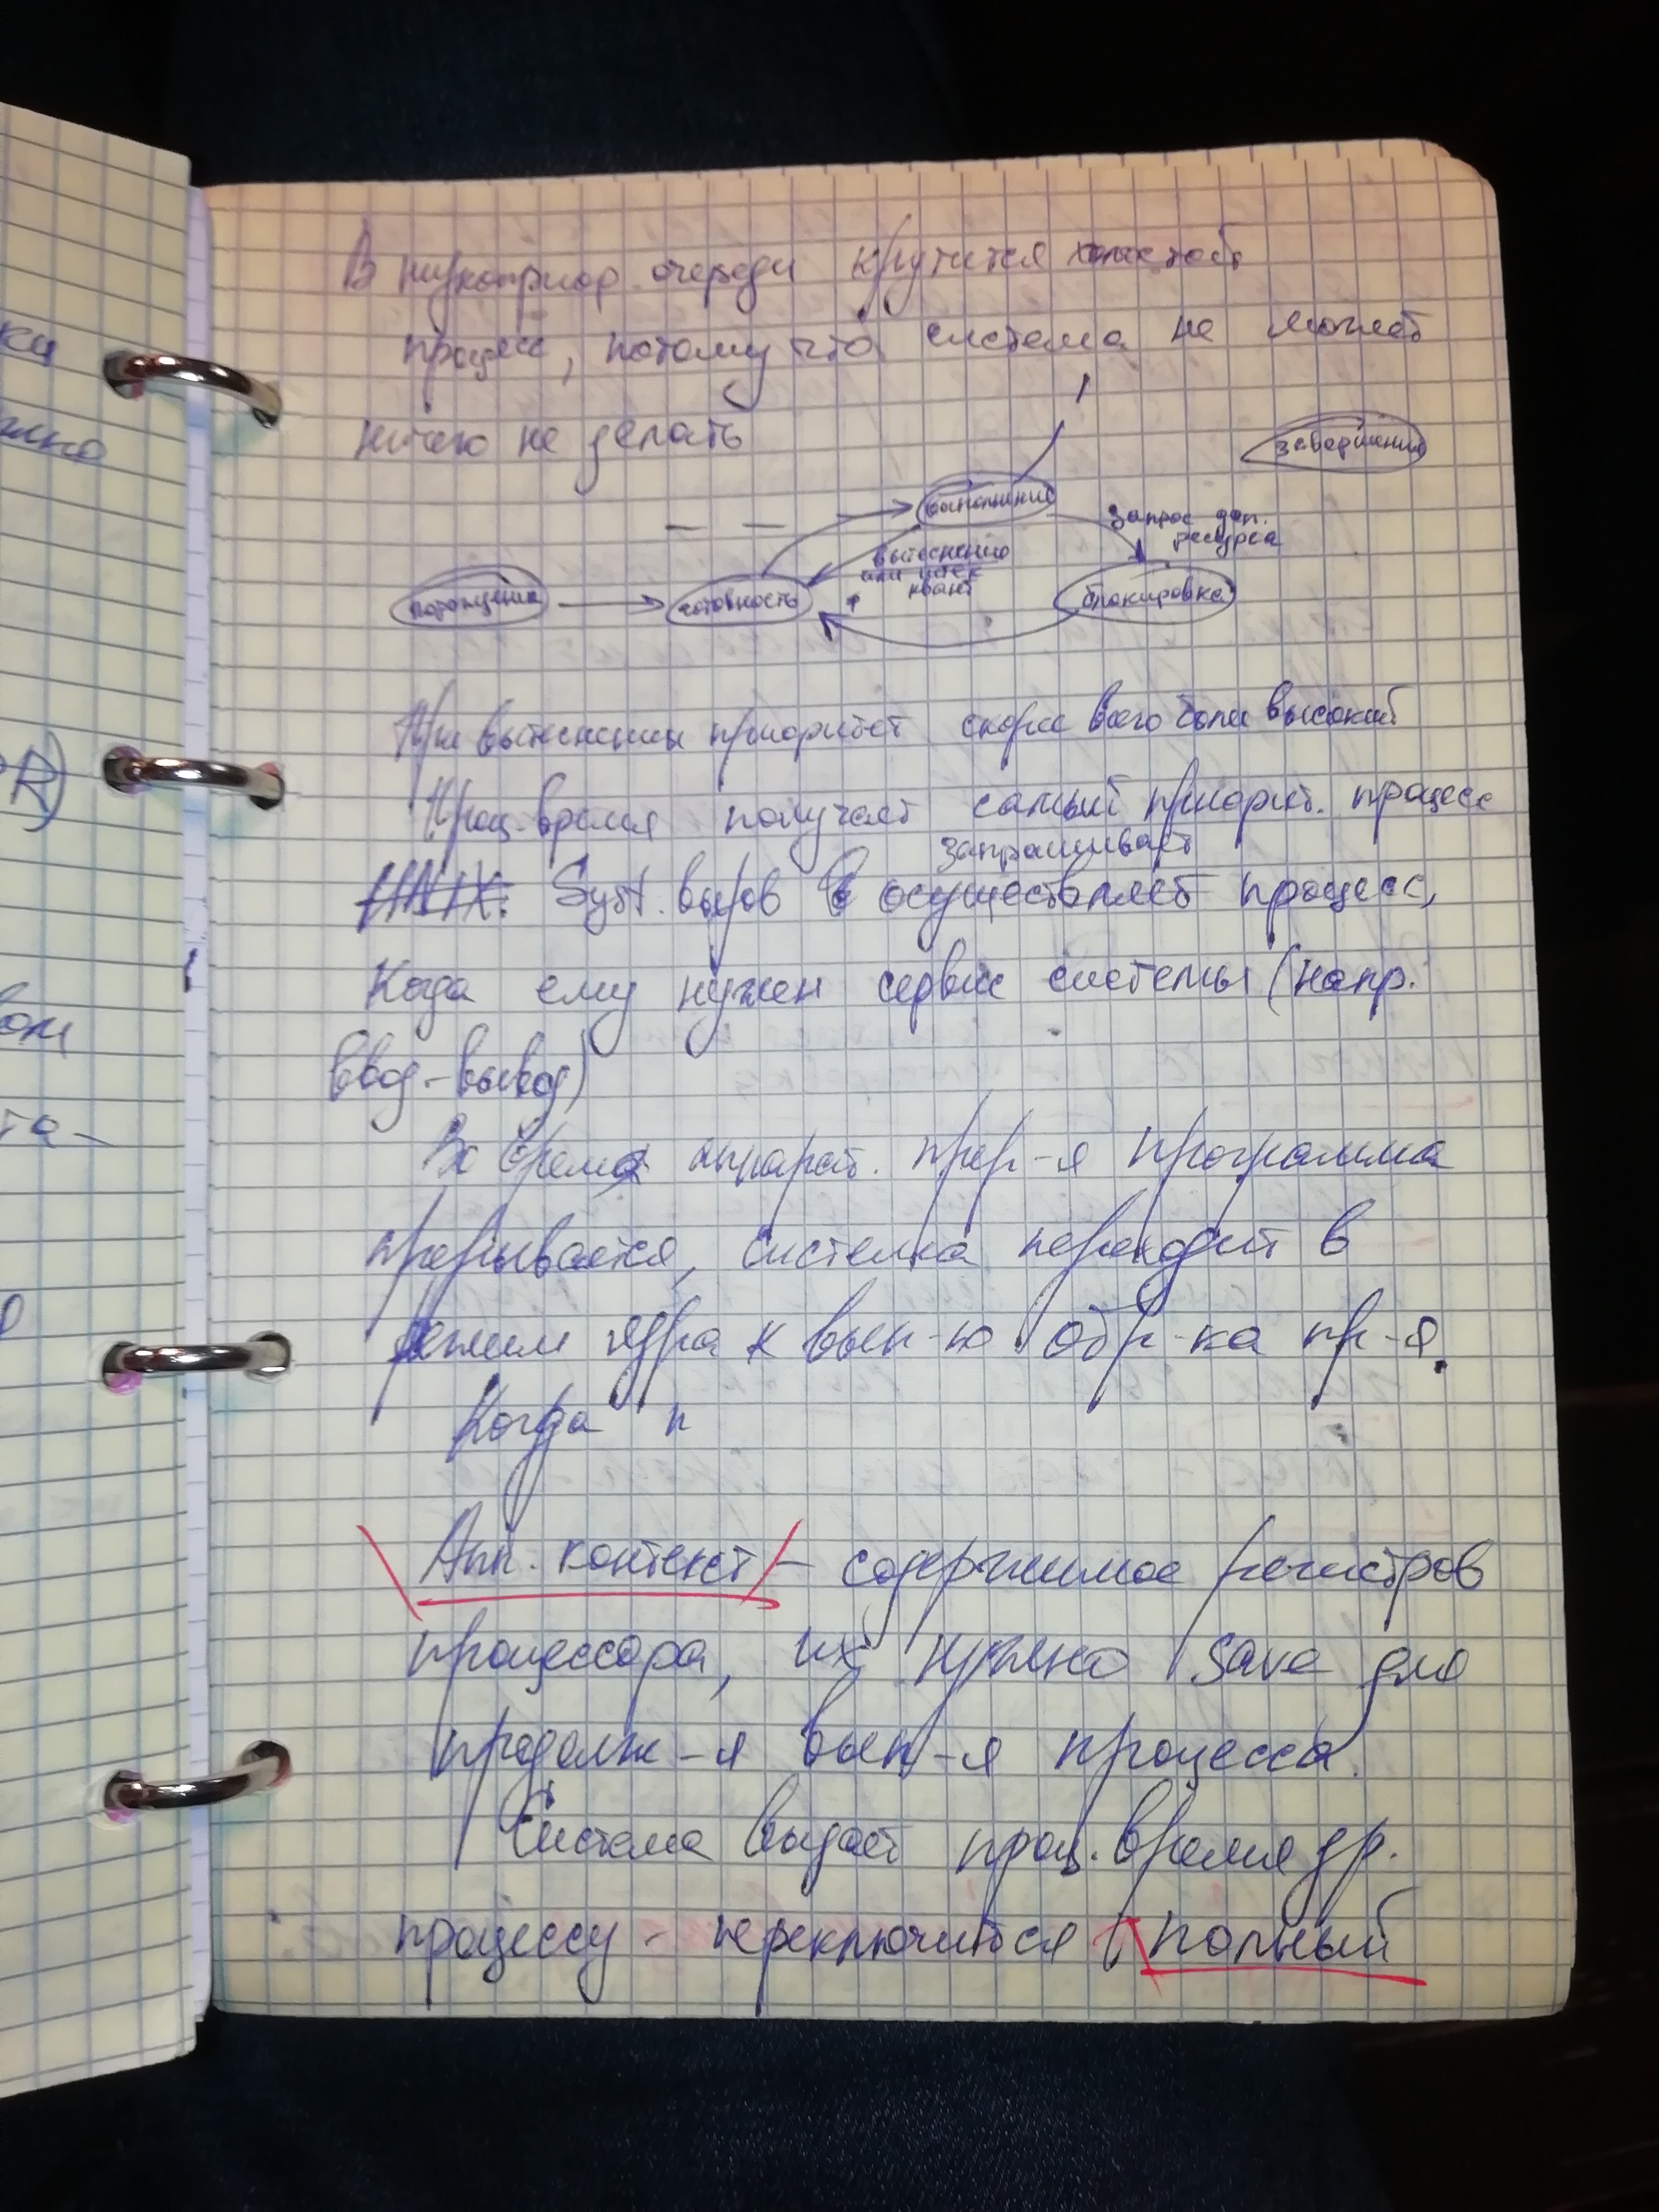 В низкоприор. очереди крутится холостой
процесс, потому что система не может
ничего не делать
завершение
выполнение
запрос доп.
ресурса
вытеснение
или истек
квант
порождение
готовность
блокировка
При вытеснении приоритет скорее всего более высокий
Проц. время получает самый приорит. процесс
запрашивает
UNIX: Syst. вызов осуществляет процесс,
Когда ему нужен сервис системы (напр.
ввод-вывод)
Во время аппарат. прер-я программа
прерывается, система переходит в
режим ядра к вып-ю обр-ка пр-я.
Когда п
Апп. контекст - содержимое регистров
процессора, их нужно save для
продолж-я вып-я процесса.
Система выдает проц. время др.
процессу - переключится (полный
ки
R)
ом
та-